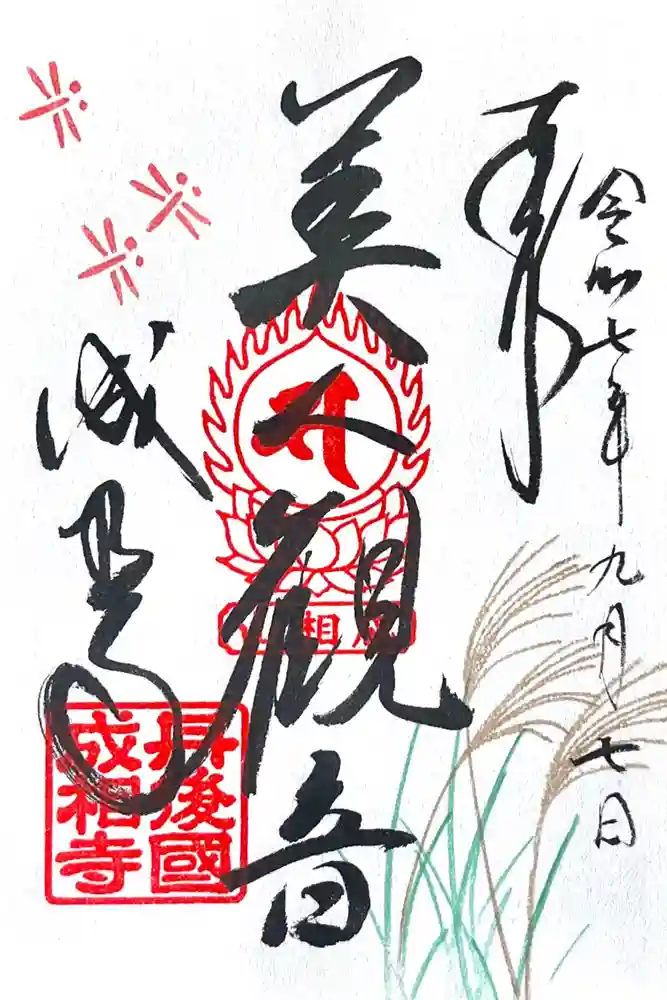 奉拝
令和七年九月七日
美人観音
成相寺
成相山
丹後國
成相寺